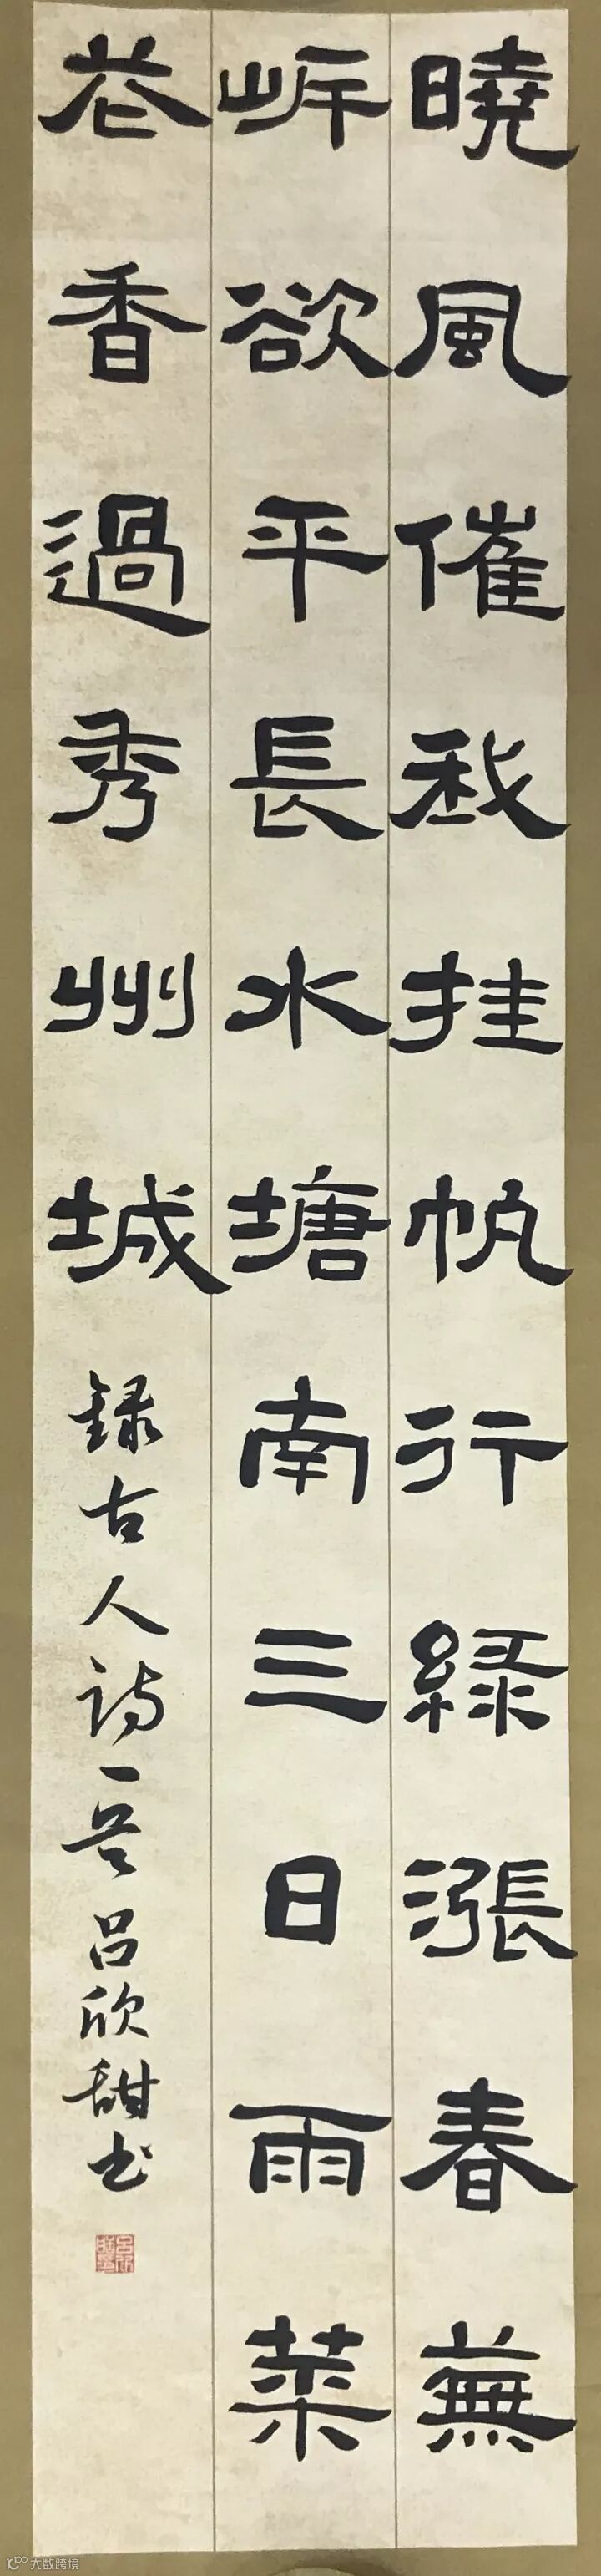 曉風催我挂帆行綠漲春蕪
岍欲平長水塘南三日雨菜
花香過秀州城 錄古人詩一首 吕欣甜书
大数跨境